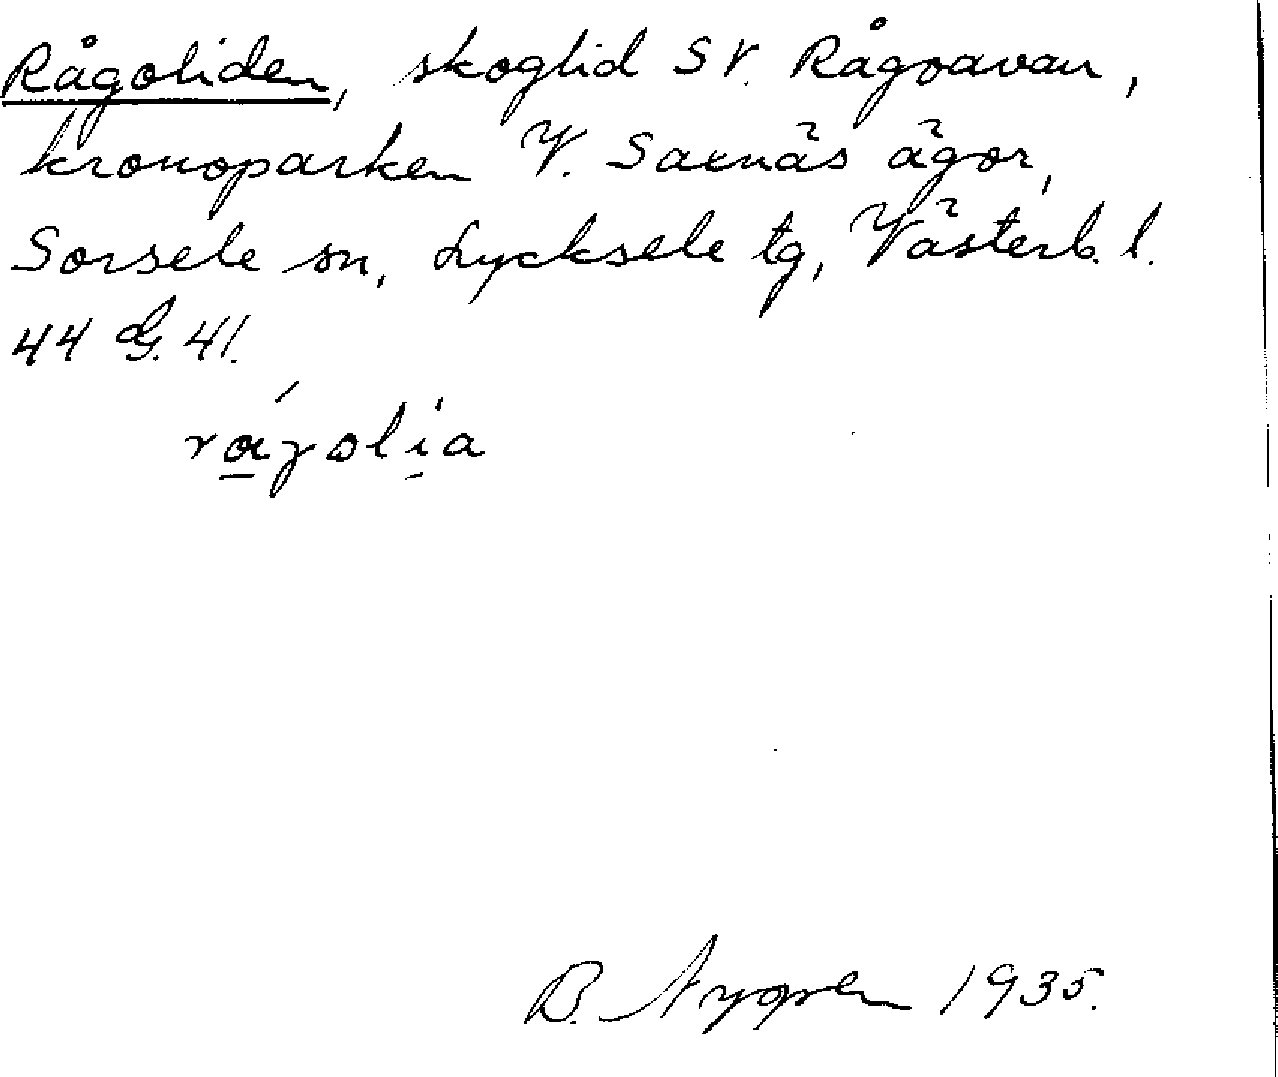 Rågoliden, skoglid SV. Rågoavan,
kronoparken V. Saxnäs ägor,
Sorsele sn, Lycksele tg, Västerb. l.
44 G. 41.
rágolia
B. Nygren 1935.